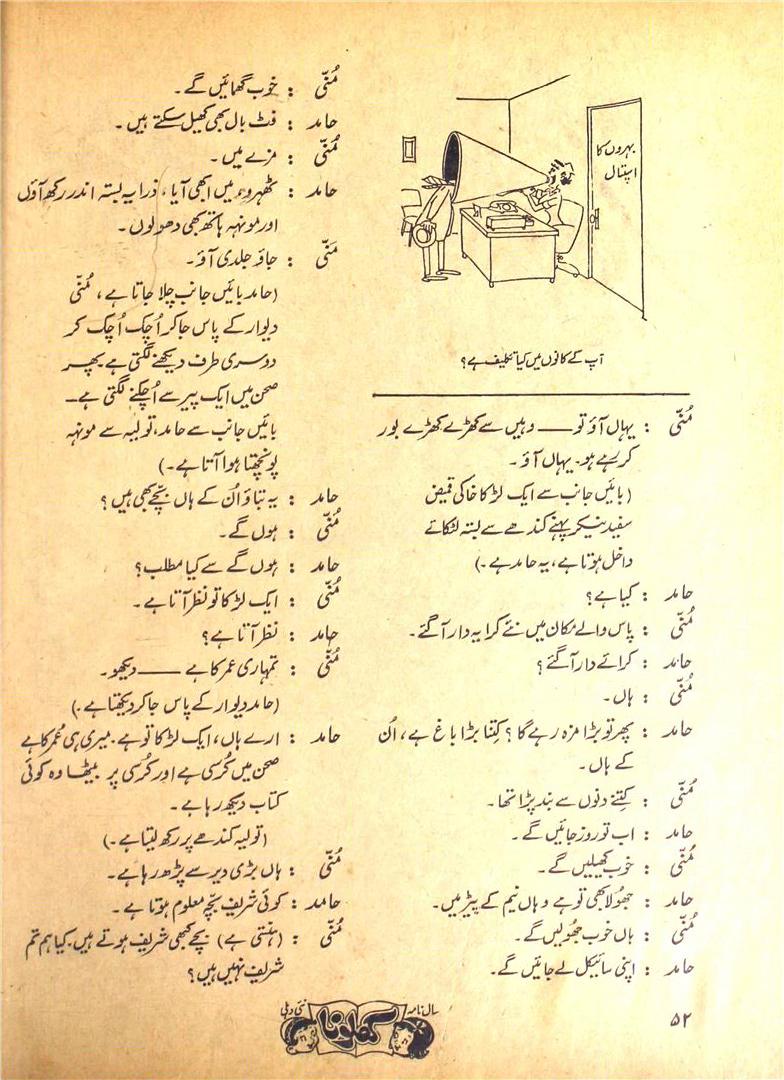 بہروں کا
اسپتال
آپ کے کانوں میں کیا تکلیف ہے؟
مُنّی : یہاں آؤ تو —— وہیں سے کھڑے کھڑے بور
کر رہے ہو۔ یہاں آؤ۔
(بائیں جانب سے ایک لڑکا خاکی قمیض
سفید نیکر پہنے کندھے سے بستہ لٹکائے
داخل ہوتا ہے، یہ حامد ہے۔)
حامد : کیا ہے؟
مُنّی : پاس والے مکان میں نئے کرایہ دار آ گئے۔
حامد : کرائے دار آ گئے؟
مُنّی : ہاں۔
حامد : پھر تو بڑا مزہ رہے گا؟ کتنا بڑا باغ ہے، اُن
کے ہاں۔
مُنّی : کتنے دنوں سے بند پڑا تھا۔
حامد : اب تو روز جائیں گے۔
مُنّی : خوب کھیلیں گے۔
حامد : جھُولا بھی تو ہے وہاں نیم کے پیڑ میں۔
مُنّی : ہاں خوب جھُولیں گے۔
حامد : اپنی سائیکل لے جائیں گے۔
مُنّی : خوب گھمائیں گے۔
حامد : فٹ بال بھی کھیل سکتے ہیں۔
مُنّی : مزے میں۔
حامد : ٹھہرو، میں ابھی آیا، ذرا یہ بستہ اندر رکھ آؤں
اور مونہہ ہاتھ بھی دھو لوں۔
مُنّی : جاؤ جلدی آؤ۔
(حامد بائیں جانب چلا جاتا ہے، مُنّی
دیوار کے پاس جا کر اُچک اُچک کر
دوسری طرف دیکھنے لگتی ہے۔ پھر
صحن میں ایک پیر سے اُچکنے لگتی ہے—
بائیں جانب سے حامد، تولیہ سے مونہہ
پونچھتا ہوا آتا ہے۔)
حامد : یہ بتاؤ اُن کے ہاں بچّے بھی ہیں؟
مُنّی : ہوں گے۔
حامد : ہوں گے سے کیا مطلب؟
مُنّی : ایک لڑکا تو نظر آتا ہے۔
حامد : نظر آتا ہے؟
مُنّی : تمہاری عمر کا ہے —— دیکھو۔
(حامد دیوار کے پاس جا کر دیکھتا ہے۔)
حامد : ارے ہاں، ایک لڑکا تو ہے۔ میری ہی عُمر کا ہے
صحن میں کُرسی ہے اور کُرسی پر بیٹھا وہ کوئی
کتاب دیکھ رہا ہے۔
(تولیہ کندھے پر رکھ لیتا ہے۔)
مُنّی : ہاں بڑی دیر سے پڑھ رہا ہے۔
حامد : کوئی شریف بچّہ معلوم ہوتا ہے۔
مُنّی : (ہنستی ہے) بچّے کبھی شریف ہوتے ہیں۔ کیا ہم تم
شریف نہیں ہیں؟
سال نامہ کھلونا نئی دہلی
۵۲